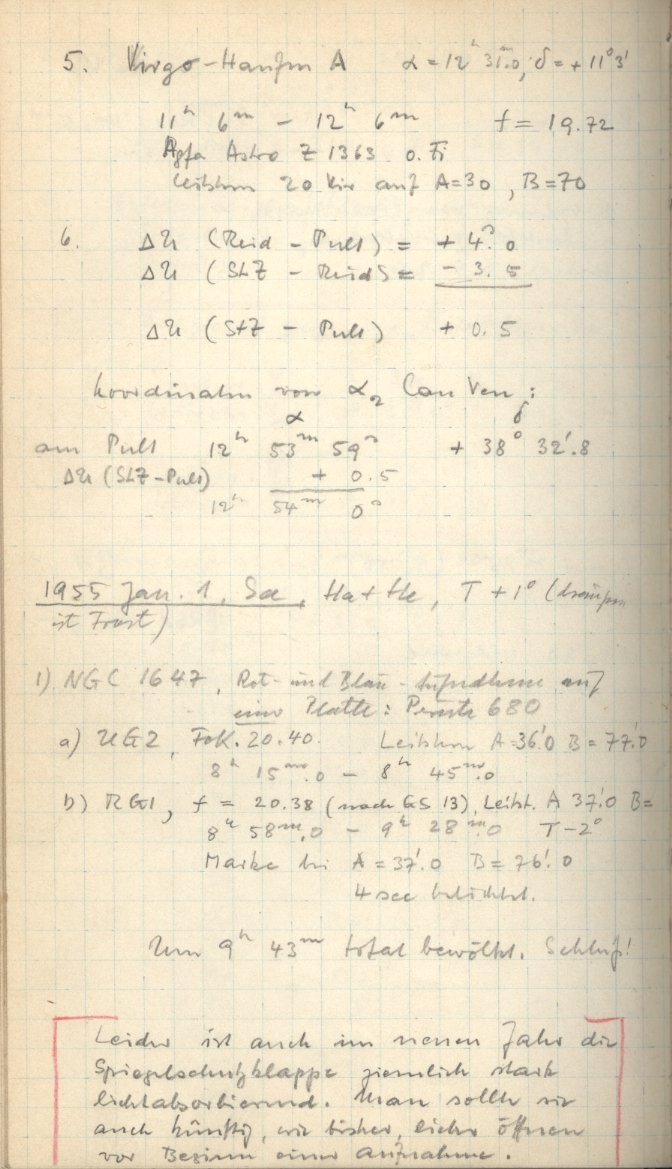 5. Virgo-Haufen A α = 12ʰ 31ᵐ.0, δ = +11°3'
11ʰ 6ᵐ – 12ʰ 6ᵐ f = 19.72
Agfa Astro Z 1363 o. Fi
Leitstern 20 Vir auf A=30, B=70
6. ΔU (Reid – Pult) = + 4ˢ.0
ΔU (StZ – Reid) = – 3.5
ΔU (StZ – Pult) + 0.5
Koordinaten von α₂ Can Ven:
α δ
am Pult 12ʰ 53ᵐ 59ˢ + 38° 32'.8
ΔU (StZ-Pult) + 0.5
12ʰ 54ᵐ 0ˢ
1955 Jan. 1, Sa, Ha + He, T + 1° (draußen
ist Frost)
1) NGC 1647, Rot- und Blau-Aufnahme auf
einer Platte: Perutz 680
a) UG2, Fok. 20.40. Leitstern A=36'.0 B=77'.0
8ʰ 15ᵐ.0 – 8ʰ 45ᵐ.0
b) RG1, f = 20.38 (nach GS 13), Leitst. A 37'.0 B=
8ʰ 58ᵐ.0 – 9ʰ 28ᵐ.0 T–2°
Marke bei A = 37'.0 B = 76'.0
4 sec belichtet.
Um 9ʰ 43ᵐ total bewölkt. Schluß!
Leider ist auch im neuen Jahr die
Spiegelschutzklappe ziemlich stark
lichtabsorbierend. Man sollte sie
auch künftig, wie bisher, lieber öffnen
vor Beginn einer Aufnahme.